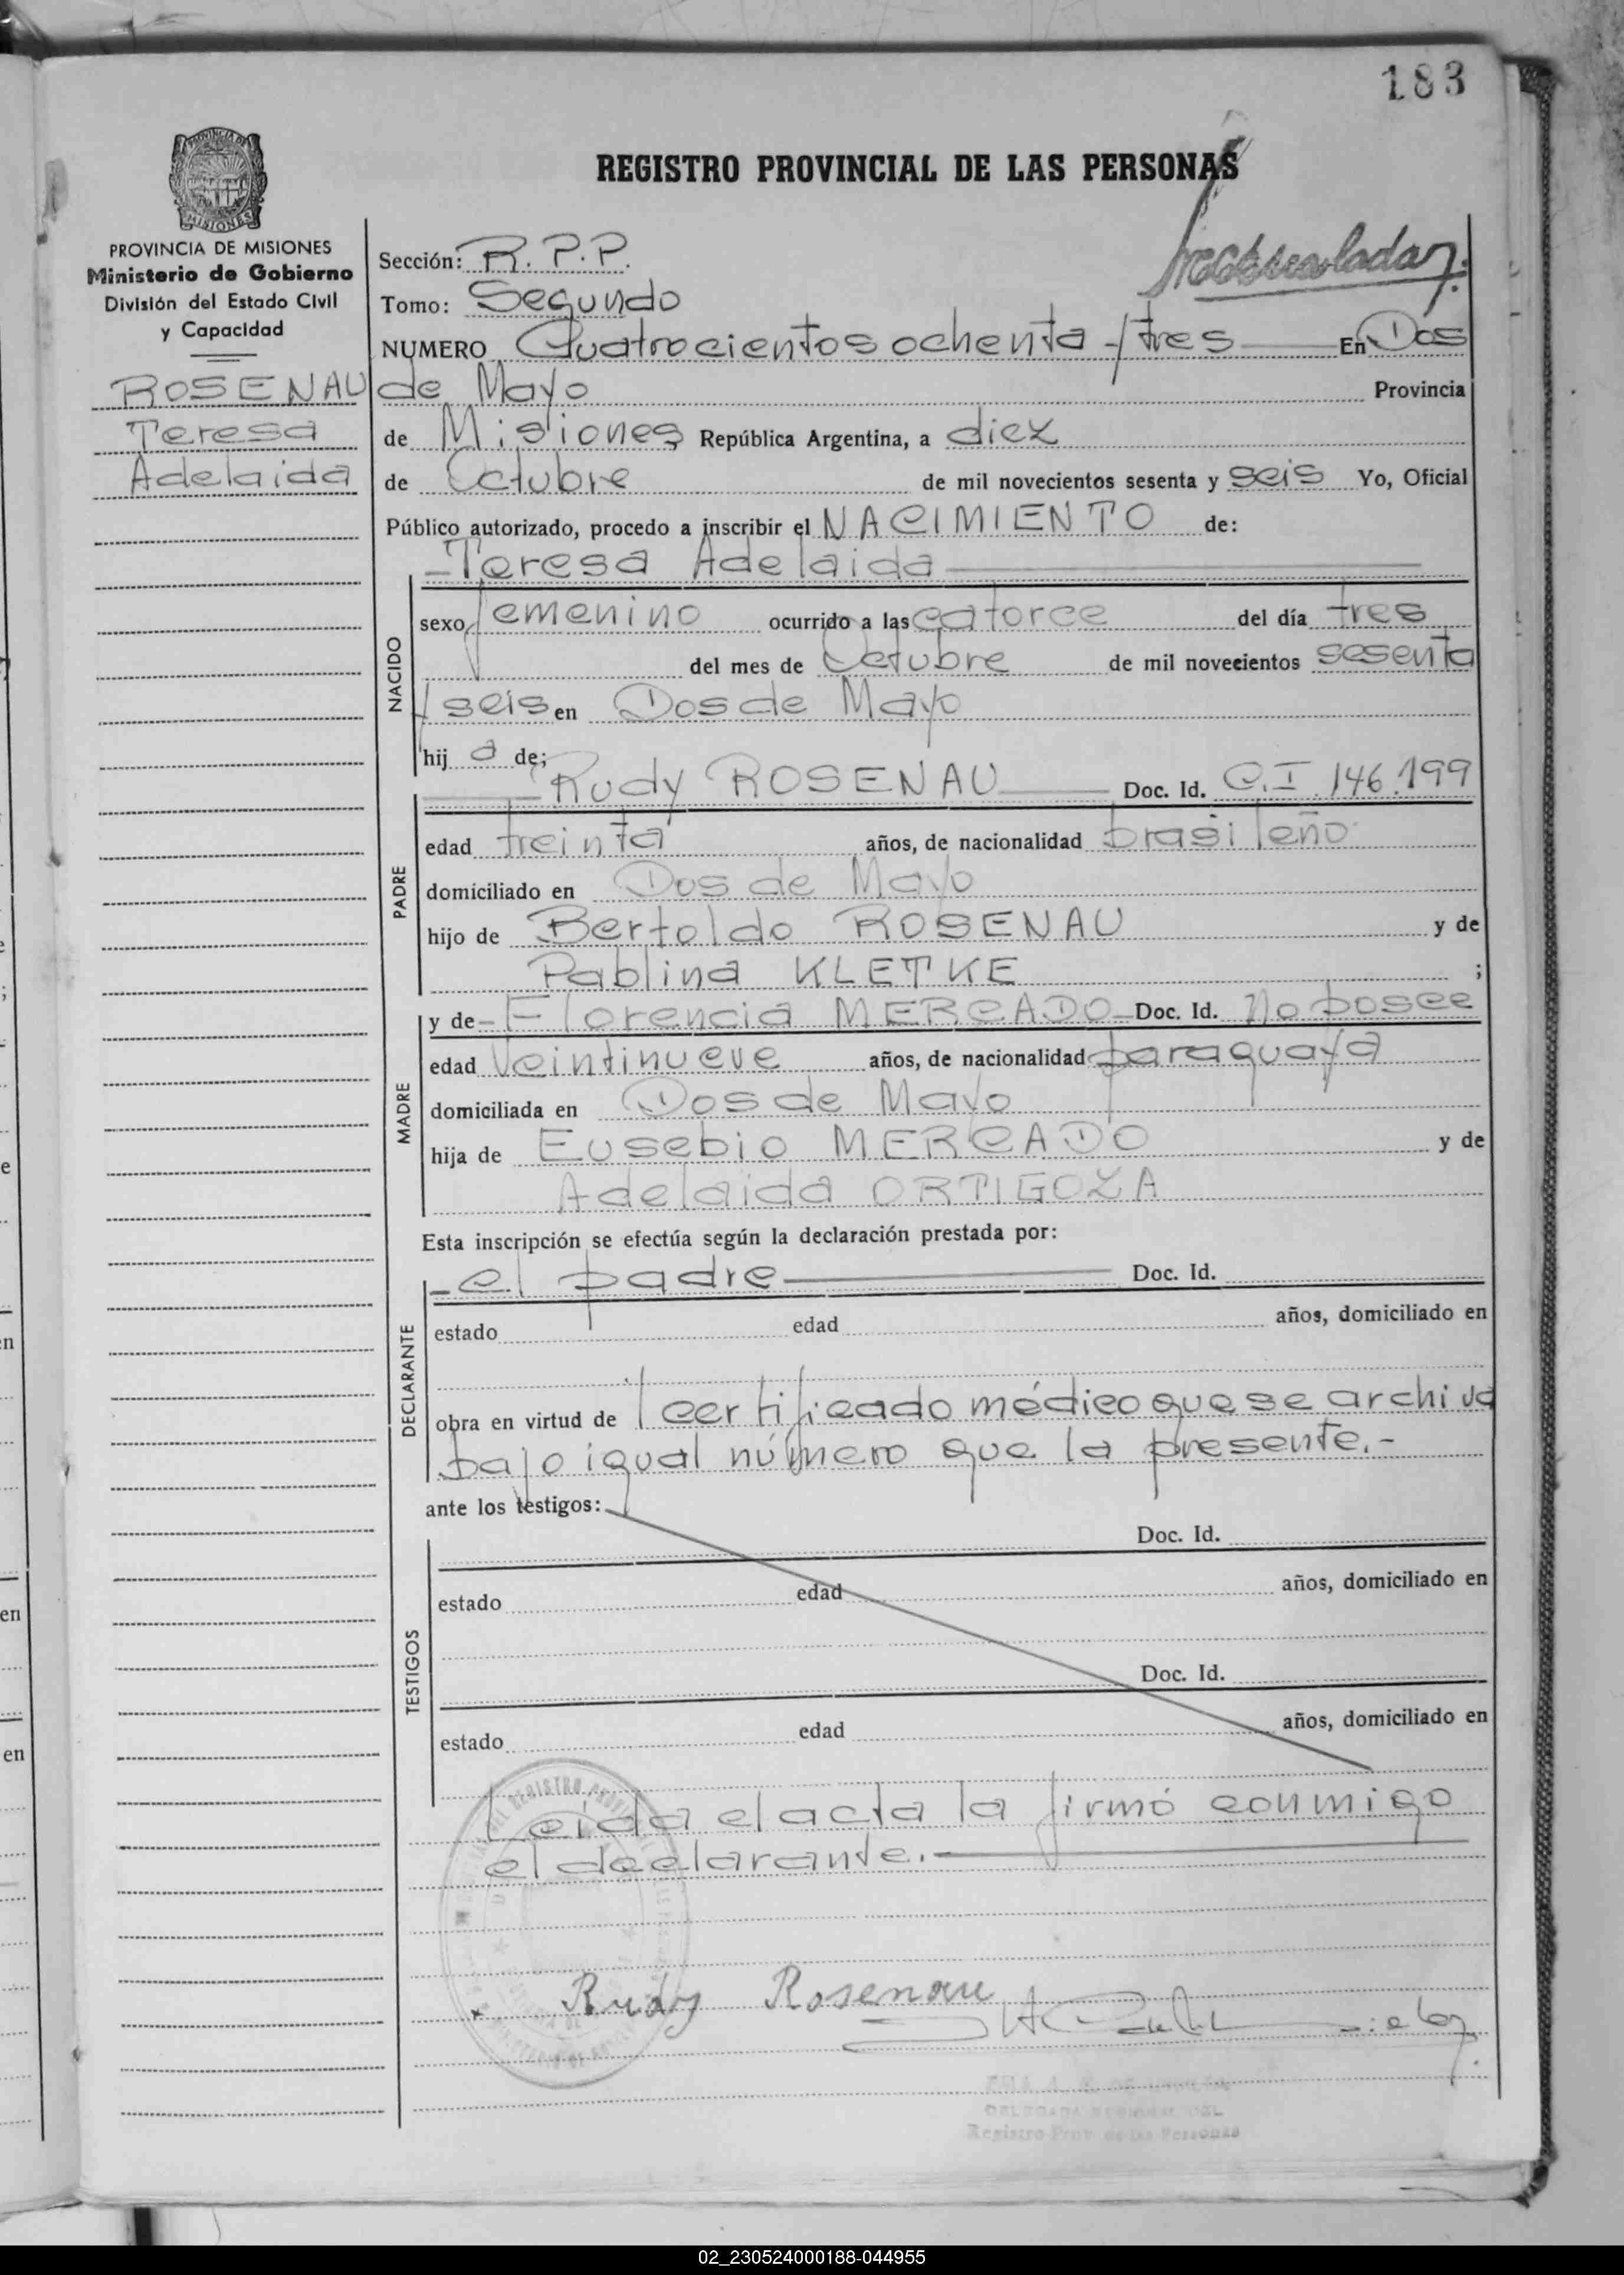 183
REGISTRO PROVINCIAL DE LAS PERSONAS
MISIONES
PROVINCIA DE MISIONES
Ministerio de Gobierno
División del Estado Civil
y Capacidad
ROSENAU
Teresa
Adelaida
Sección: R. P. P.
Tomo: Segundo
NUMERO Cuatrocientos ochenta y tres En Dos
de Mayo Provincia
de Misiones República Argentina, a diez
de Octubre de mil novecientos sesenta y seis Yo, Oficial
Público autorizado, procedo a inscribir el NACIMIENTO de:
- Teresa Adelaida
NACIDO
sexo femenino ocurrido a las catorce del día tres
del mes de Octubre de mil novecientos sesenta
y seis en Dos de Mayo
hij a de;
- Rudy ROSENAU Doc. Id. C.I. 146.199
PADRE
edad treinta años, de nacionalidad brasileño
domiciliado en Dos de Mayo
hijo de Bertoldo ROSENAU y de
Pablina KLETKE ;
MADRE
y de - Florencia MERCADO - Doc. Id. No posee
edad veintinueve años, de nacionalidad paraguaya
domiciliada en Dos de Mayo
hija de Eusebio MERCADO y de
Adelaida ORTIGOZA
Esta inscripción se efectúa según la declaración prestada por:
DECLARANTE
- el padre Doc. Id.
estado edad años, domiciliado en
obra en virtud de l certificado médico que se archiva
bajo igual número que la presente.-
ante los testigos:
TESTIGOS
Doc. Id.
estado edad años, domiciliado en
Doc. Id.
estado edad años, domiciliado en
Leida el acta la firmó conmigo
el declarante.-
Rudy Rosenau
DELEGADA REGIONAL DEL
Registro Prov. de las Personas
02_230524000188-044955